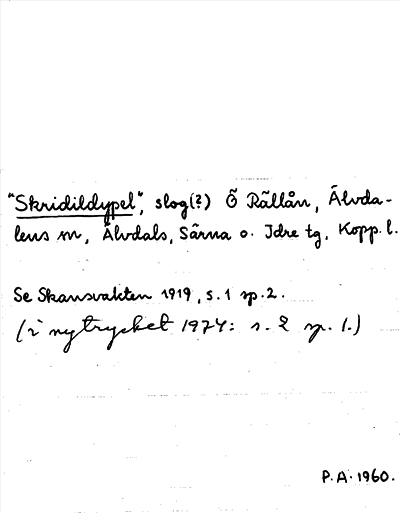 "Skridildypel", slog(?) Ö Rällån, Älvda-
lens sn, Älvdals, Särna o. Idre tg, Kopp. l.
Se Skansvakten 1919, s. 1 sp. 2.
(i nytrycket 1974: s. 2 sp. 1.)
P.A. 1960.